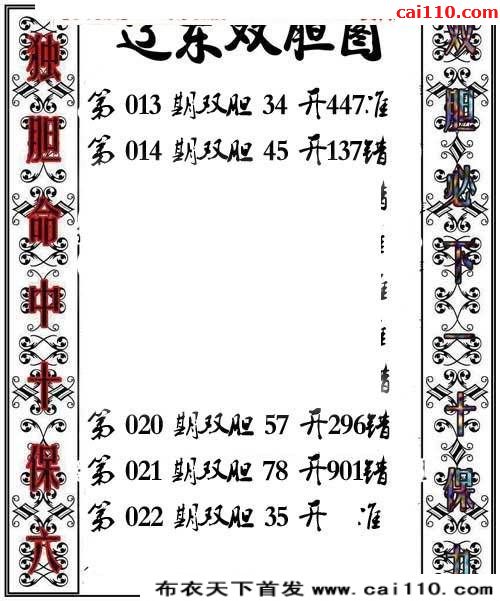 cai110.com
辽东双胆图
独胆命中十保六
双胆必下一十保九
第 013 期双胆 34 开447准
第 014 期双胆 45 开137错
错
准
准
准
错
第 020 期双胆 57 开296错
第 021 期双胆 78 开901错
第 022 期双胆 35 开 准
布衣天下首发 www.cai110.com